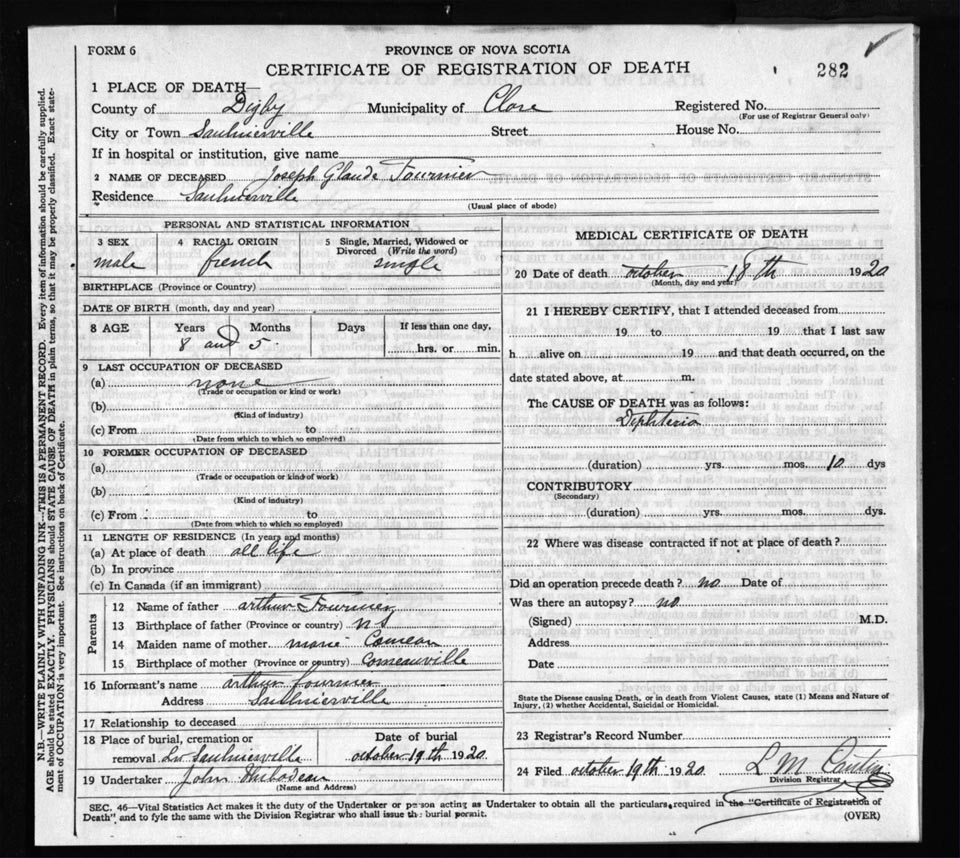 FORM 6
PROVINCE OF NOVA SCOTIA
CERTIFICATE OF REGISTRATION OF DEATH
282
1 PLACE OF DEATH—
County of Digby Municipality of Clare Registered No.
(For use of Registrar General only)
City or Town Saulnierville Street House No.
If in hospital or institution, give name
2 NAME OF DECEASED Joseph Glaude Fournier
Residence Saulnierville
(Usual place of abode)
N.B.—WRITE PLAINLY WITH UNFADING INK—THIS IS A PERMANENT RECORD. Every item of information should be carefully supplied.
AGE should be stated EXACTLY. PHYSICIANS should STATE CAUSE OF DEATH in plain terms, so that it may be properly classified. Exact state-
ment of OCCUPATION is very important. See instructions on back of Certificate.
PERSONAL AND STATISTICAL INFORMATION
3 SEX 4 RACIAL ORIGIN 5 Single, Married, Widowed or
Divorced (Write the word)
male french single
BIRTHPLACE (Province or Country)
DATE OF BIRTH (month, day and year)
8 AGE Years Months Days If less than one day,
8 and 5 hrs. or min.
9 LAST OCCUPATION OF DECEASED
(a) none
(Trade or occupation or kind or work)
(b)
(Kind of industry)
(c) From to
(Date from which to which so employed)
10 FORMER OCCUPATION OF DECEASED
(a)
(Trade or occupation or kind of work)
(b)
(Kind of industry)
(c) From to
(Date from which to which so employed)
11 LENGTH OF RESIDENCE (In years and months)
(a) At place of death all life
(b) In province
(c) In Canada (if an immigrant)
Parents
12 Name of father arthur Fournier
13 Birthplace of father (Province or country) NS
14 Maiden name of mother marie Comeau
15 Birthplace of mother (Province or country) Comeauville
16 Informant's name arthur fournier
Address Saulnierville
17 Relationship to deceased
18 Place of burial, cremation or Date of burial
removal Saulnierville october 19th 1920
19 Undertaker John
(Name and Address)
MEDICAL CERTIFICATE OF DEATH
20 Date of death october 18th 1920
(Month, day and year)
21 I HEREBY CERTIFY, that I attended deceased from
19 to 19 that I last saw
h alive on 19 and that death occurred, on the
date stated above, at m.
The CAUSE OF DEATH was as follows:
Diphteria
(duration) yrs. mos. 10 dys
CONTRIBUTORY
(Secondary)
(duration) yrs. mos. dys.
22 Where was disease contracted if not at place of death?
Did an operation precede death? no Date of
Was there an autopsy? no
(Signed) M.D.
Address
Date
State the Disease causing Death, or in death from Violent Causes, state (1) Means and Nature of
Injury, (2) whether Accidental, Suicidal or Homicidal.
23 Registrar's Record Number
24 Filed october 19th 1920 L M
Division Registrar
SEC. 46—Vital Statistics Act makes it the duty of the Undertaker or person acting as Undertaker to obtain all the particulars required in the "Certificate of Registration of
Death" and to fyle the same with the Division Registrar who shall issue the burial permit.
(OVER)